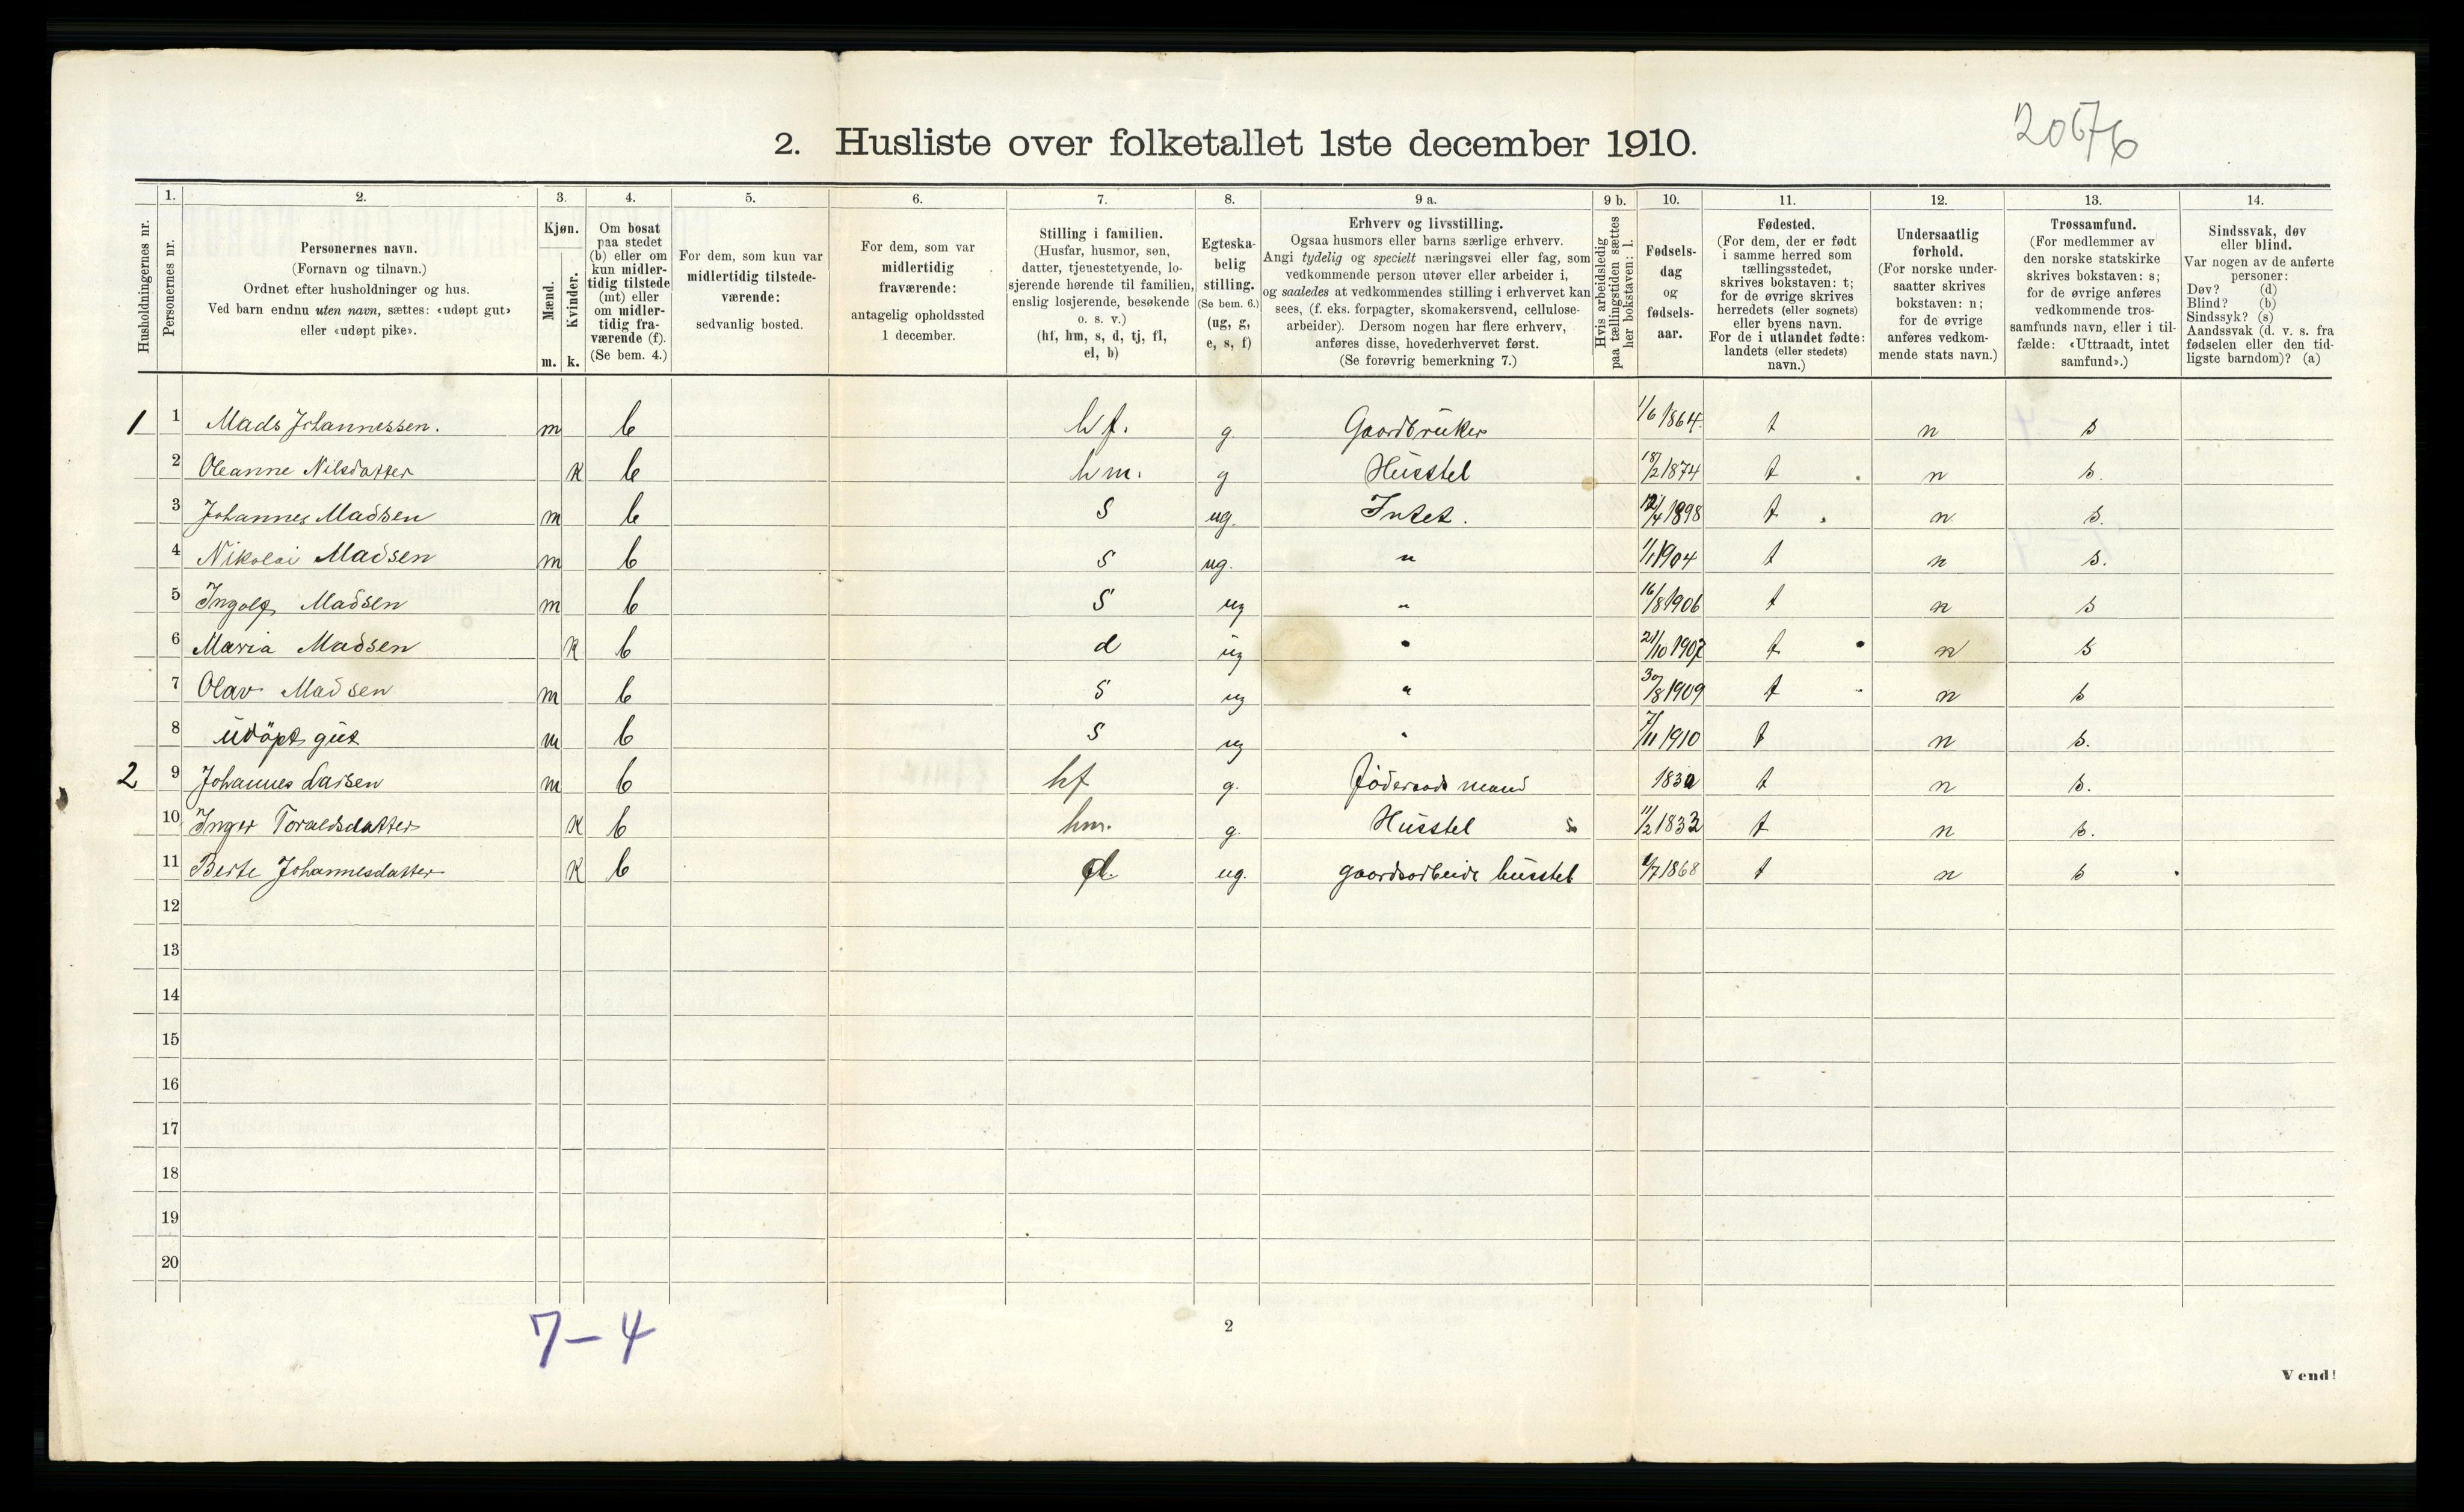 2. Husliste over folketallet 1ste december 1910.
2076
1. 2. 3. 4. 5. 6. 7. 8. 9 a. 9 b. 10. 11. 12. 13. 14.
Husholdningernes nr.
Personernes nr.
Personernes navn.
(Fornavn og tilnavn.)
Ordnet efter husholdninger og hus.
Ved barn endnu uten navn, sættes: «udøpt gut»
eller «udøpt pike».
Kjøn.
Mænd.
Kvinder.
m. k.
Om bosat
paa stedet
(b) eller om
kun midler-
tidig tilstede
(mt) eller
om midler-
tidig fra-
værende (f).
(Se bem. 4.)
For dem, som kun var
midlertidig tilstede-
værende:
sedvanlig bosted.
For dem, som var
midlertidig
fraværende:
antagelig opholdssted
1 december.
Stilling i familien.
(Husfar, husmor, søn,
datter, tjenestetyende, lo-
sjerende hørende til familien,
enslig losjerende, besøkende
o. s. v.)
(hf, hm, s, d, tj, fl,
el, b)
Egteska-
belig
stilling.
(Se bem. 6.)
(ug, g,
e, s, f)
Erhverv og livsstilling.
Ogsaa husmors eller barns særlige erhverv.
Angi tydelig og specielt næringsvei eller fag, som
vedkommende person utøver eller arbeider i,
og saaledes at vedkommendes stilling i erhvervet kan
sees, (f. eks. forpagter, skomakersvend, cellulose-
arbeider). Dersom nogen har flere erhverv,
anføres disse, hovederhvervet først.
(Se forøvrig bemerkning 7.)
Hvis arbeidsledig
paa tællingstiden sættes
her bokstaven: l.
Fødsels-
dag
og
fødsels-
aar.
Fødested.
(For dem, der er født
i samme herred som
tællingsstedet,
skrives bokstaven: t;
for de øvrige skrives
herredets (eller sognets)
eller byens navn.
For de i utlandet fødte:
landets (eller stedets)
navn.)
Undersaatlig
forhold.
(For norske under-
saatter skrives
bokstaven: n;
for de øvrige
anføres vedkom-
mende stats navn.)
Trossamfund.
(For medlemmer av
den norske statskirke
skrives bokstaven: s;
for de øvrige anføres
vedkommende tros-
samfunds navn, eller i til-
fælde: «Uttraadt, intet
samfund».)
Sindssvak, døv
eller blind.
Var nogen av de anførte
personer:
Døv? (d)
Blind? (b)
Sindssyk? (s)
Aandssvak (d. v. s. fra
fødselen eller den tid-
ligste barndom)? (a)
1 1 Mads Johannessen. m b hf. g. Gaardbruker 1/6 1864 t n s
2 Oleanne Nilsdatter k b hm. g Husstel 18/2 1874 t n s.
3 Johannes Madsen m b s ug. Intet. 12/4 1898 t n s.
4 Nikolai Madsen m b s ug. " 1/1 1904 t n s.
5 Ingolf Madsen m b s ug " 16/8 1906 t n s
6 Maria Madsen k b d ug " 21/10 1907 t n s
7 Olav Madsen m b s ug " 30/8 1909 t n s
8 udöpt gut m b s ug " 7/11 1910 t n s.
2 9 Johannes Larsen m b hf g. födteraads mand t n s.
10 Inger Toraldsdatter k b hm. g. Husstel 11/2 1833 t n s.
11 Berte Johannesdatter k b d. ug. gaardsarbeide husstel /7 1868 t n s
12
13
14
15
16
17
18
19
20
7-4
2
Vend!